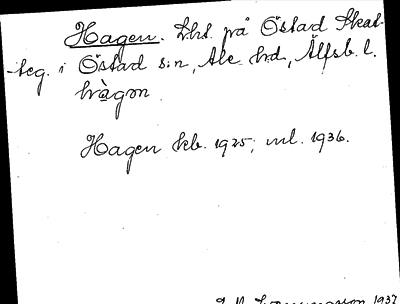 Hagen. Lht. på Östad Skat-
teg. i Östad s:n, Ale hd, Älfsb. l.
hàgən
Hagen kb. 1925; ml. 1936.
1937